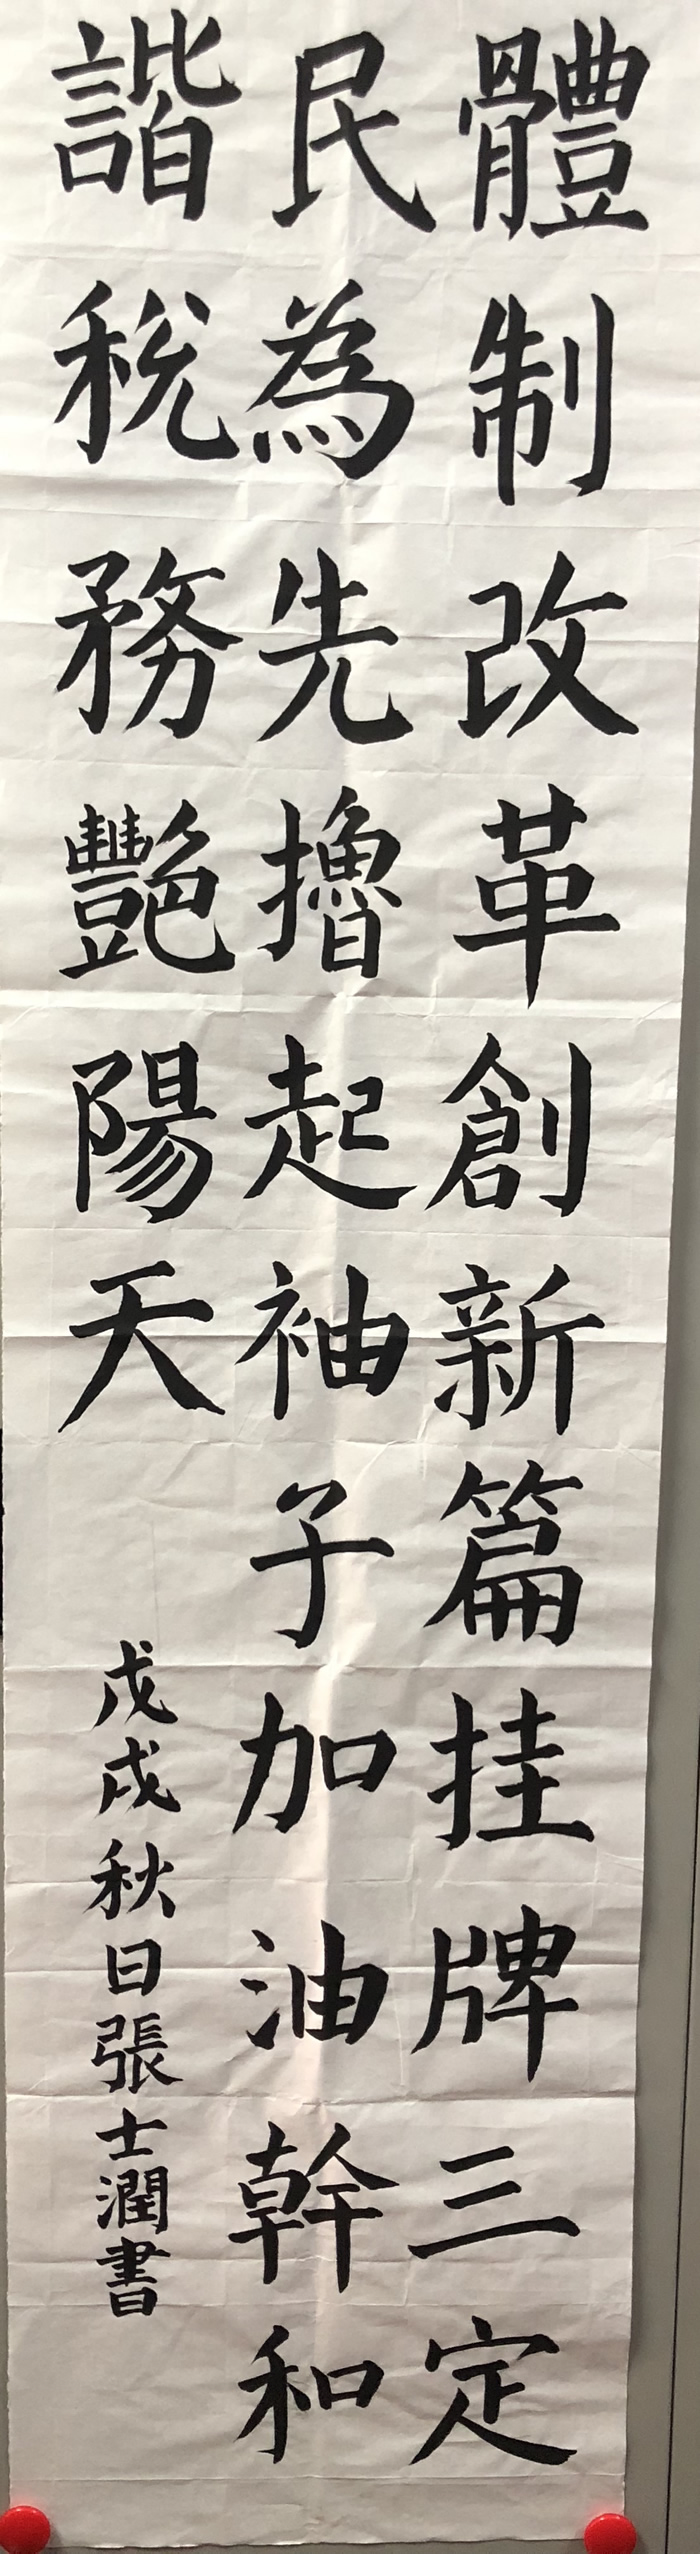 體制改革創新篇挂牌三定
民為先擼起袖子加油幹和
諧稅務艷陽天
戊戌秋日張士潤書